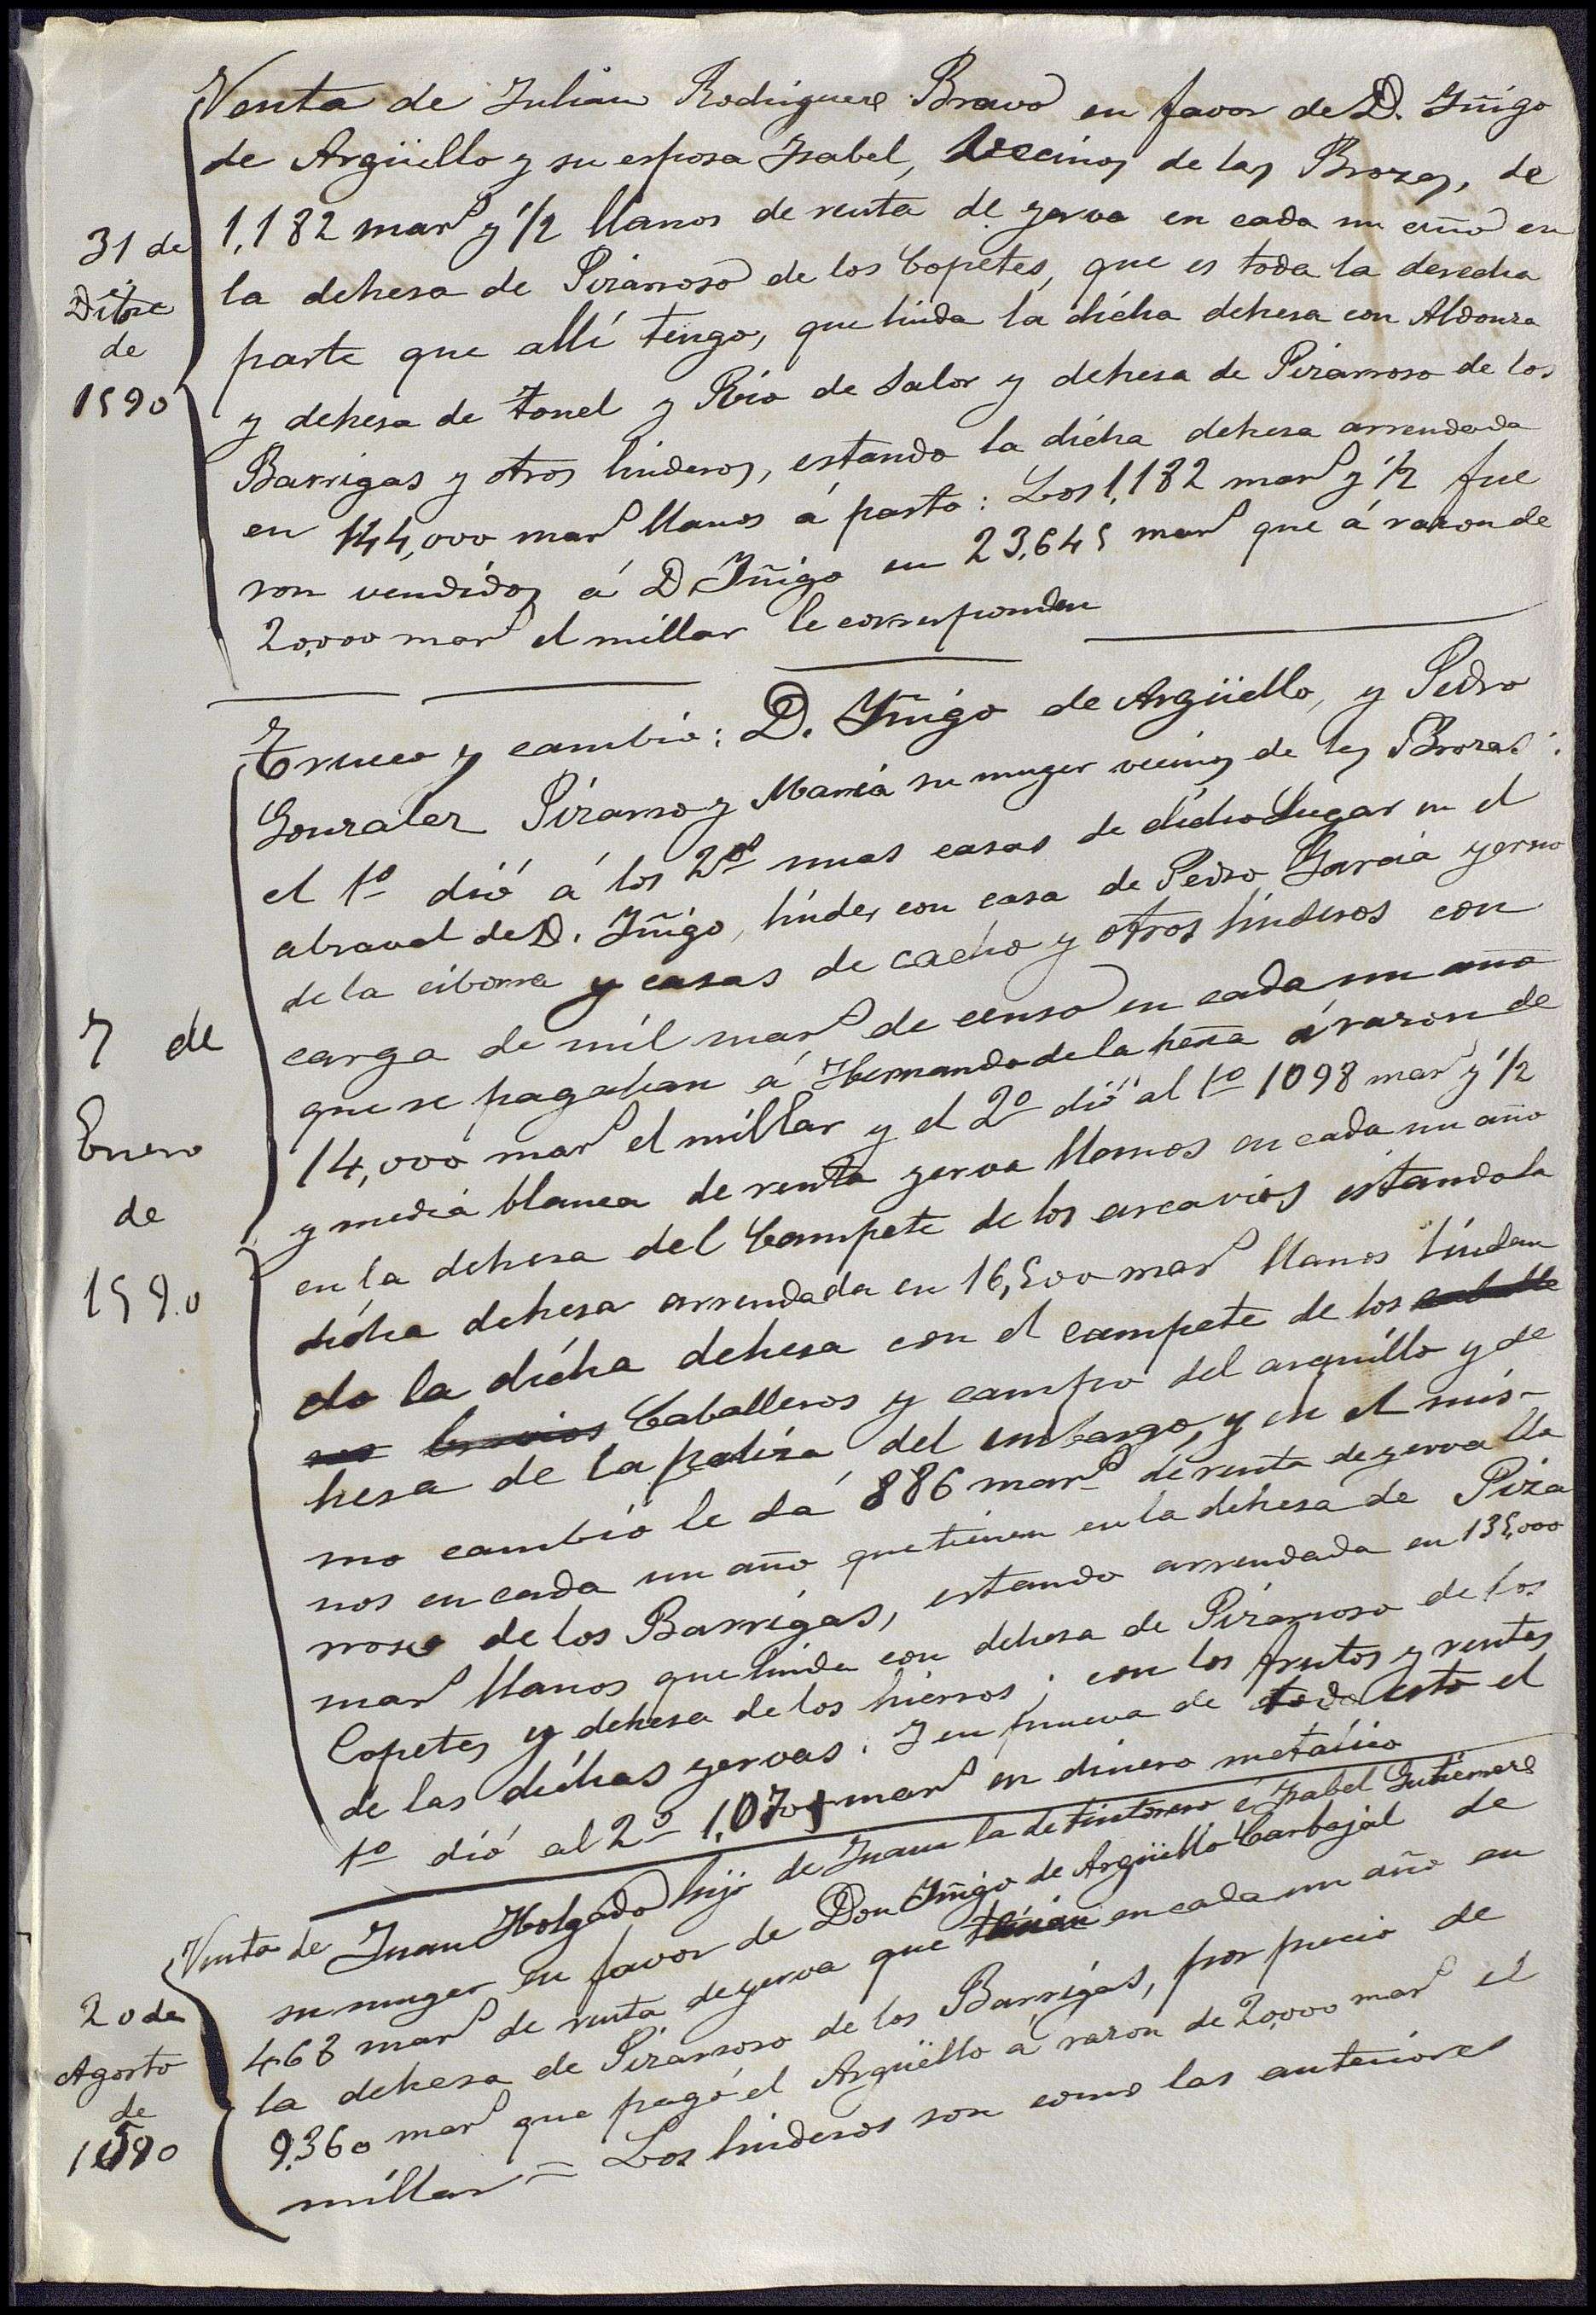 Venta de Julian Rodriguez Bravo en favor de D. Yñigo
de Argüello y su esposa Isabel, vecinos de las Brozas, de
1,182 marˢ y ½ llanos de renta de yerva en cada un año en
la dehesa de Pizarroso de los Copetes, que es toda la derecha
parte que allí tengo, que linda la dicha dehesa con Aldonza
y dehesa de Tonel y Rio de Salor y dehesa de Pizarroso de los
Barrigas y otros linderos, estando la dicha dehesa arrendada
en 144,000 marˢ llanos á pasto: Los 1,182 marˢ y ½ fue
ron vendidos á D. Yñigo en 23,645 marˢ que á razon de
20,000 marˢ el millar le corresponden
31 de
Dibre
de
1590
Trueco y cambio: D. Yñigo de Argüello, y Pedro
Gonzalez Pizarro y Maria su muger vecinos de las Brozas:
el 1º dió á los 2ºˢ unas casas de dicho Lugar en el
abraval de D. Yñigo, linder con casa de Pedro Garcia yerno
de la y casas de cacho y otros linderos con
carga de mil marˢ de censo en cada un año
que se pagaban á Hernando de la peña á razon de
14,000 marˢ el millar y el 2º dió al 1º 1098 marˢ y ½
y media blanca de renta yerva llanos en cada un año
en la dehesa del Campete de los arcavios estando la
dicha dehesa arrendada en 16,500 marˢ llanos lindan
do la dicha dehesa con el campete de los
Caballeros y campo del arquillo y de
hesa de la paliza del embargo, y en el mis-
mo cambio le da 886 marˢ de renta de yerva lla
nos en cada un año que tienen en la dehesa de Piza
rroso de los Barrigas, estando arrendada en 135,000
marˢ llanos que linda con dehesa de Pizarroso de los
Copetes y dehesa de los hierros; con los frutos y rentas
de las dichas yervas. Y en prueva de todo esto el
1º dió al 2º marˢ en dinero metalico
7 de
Enero
de
1590
Venta de Juan Holgado hijo de Juana la de tintorero é Isabel Gutierrez
su muger en favor de Don Yñigo de Argüello Carbajal de
468 marˢ de renta de yerva que tenian en cada un año en
la dehesa de Pizarroso de los Barrigas, por precio de
9,360 marˢ que pagó el Argüello á razon de 20,000 marˢ el
millar = Los linderos son como las anteriores
20 de
Agosto
de
1590